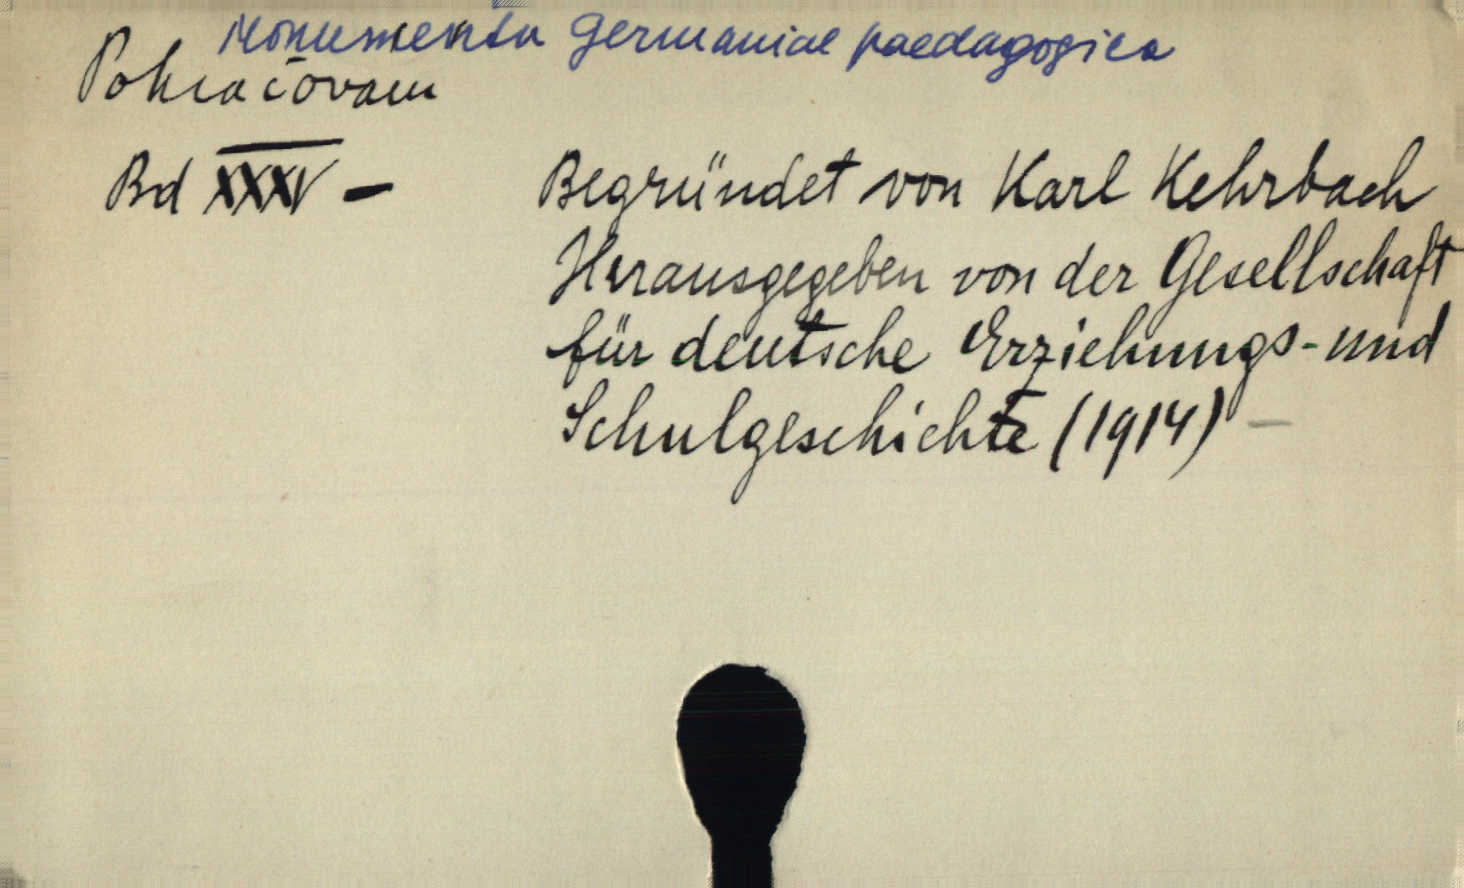 Monumenta Germaniae paedagogica
Pokračovam
Bd XXXV – Begründet von Karl Kehrbach
Herausgegeben von der Gesellschaft
für deutsche Erziehungs- und
Schulgeschichte (1914) –